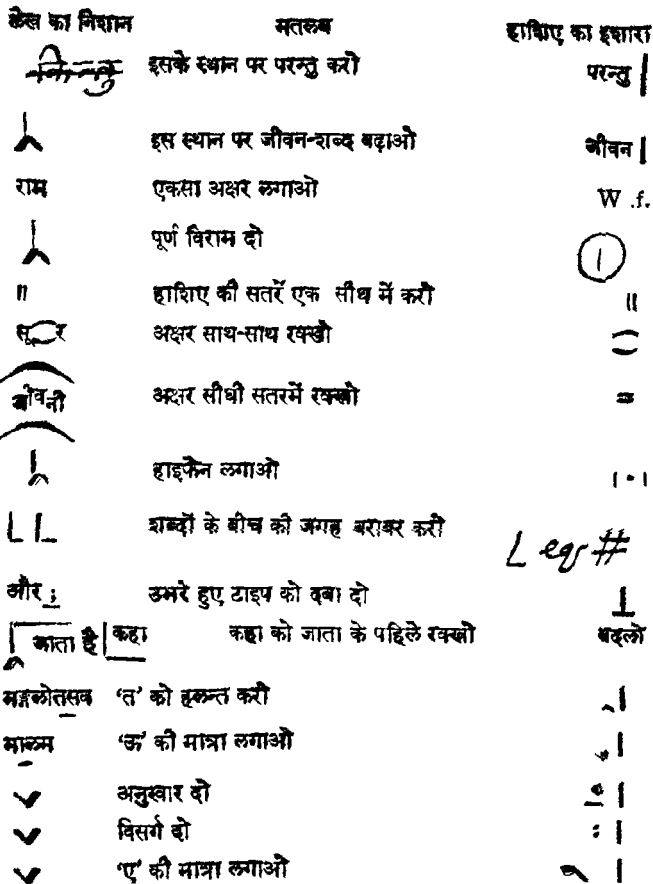 लेख का निशान मतलब हाशिए का इशारा
किन्तु इसके स्थान पर परन्तु करो परन्तु |
इस स्थान पर जीवन-शब्द बढ़ाओ जीवन |
राम एकसा अक्षर लगाओ W .f.
पूर्ण विराम दो
|| हाशिए की सतरें एक सीध में करो ||
सूर अक्षर साथ-साथ रक्खो
जीवनी अक्षर सीधी सतरमें रक्खो =
हाइफेन लगाओ | - |
शब्दों के बीच की जगह बराबर करो eq #
और ; उभरे हुए टाइप को दबा दो
जाता है | कहा कहा को जाता के पहिले रक्खो बदलो
मङ्गलोतसव ‘त’ को हलन्त करो
मालम ‘ऊ’ की मात्रा लगाओ
अनुस्वार दो
विसर्ग दो : |
‘ए’ की मात्रा लगाओ